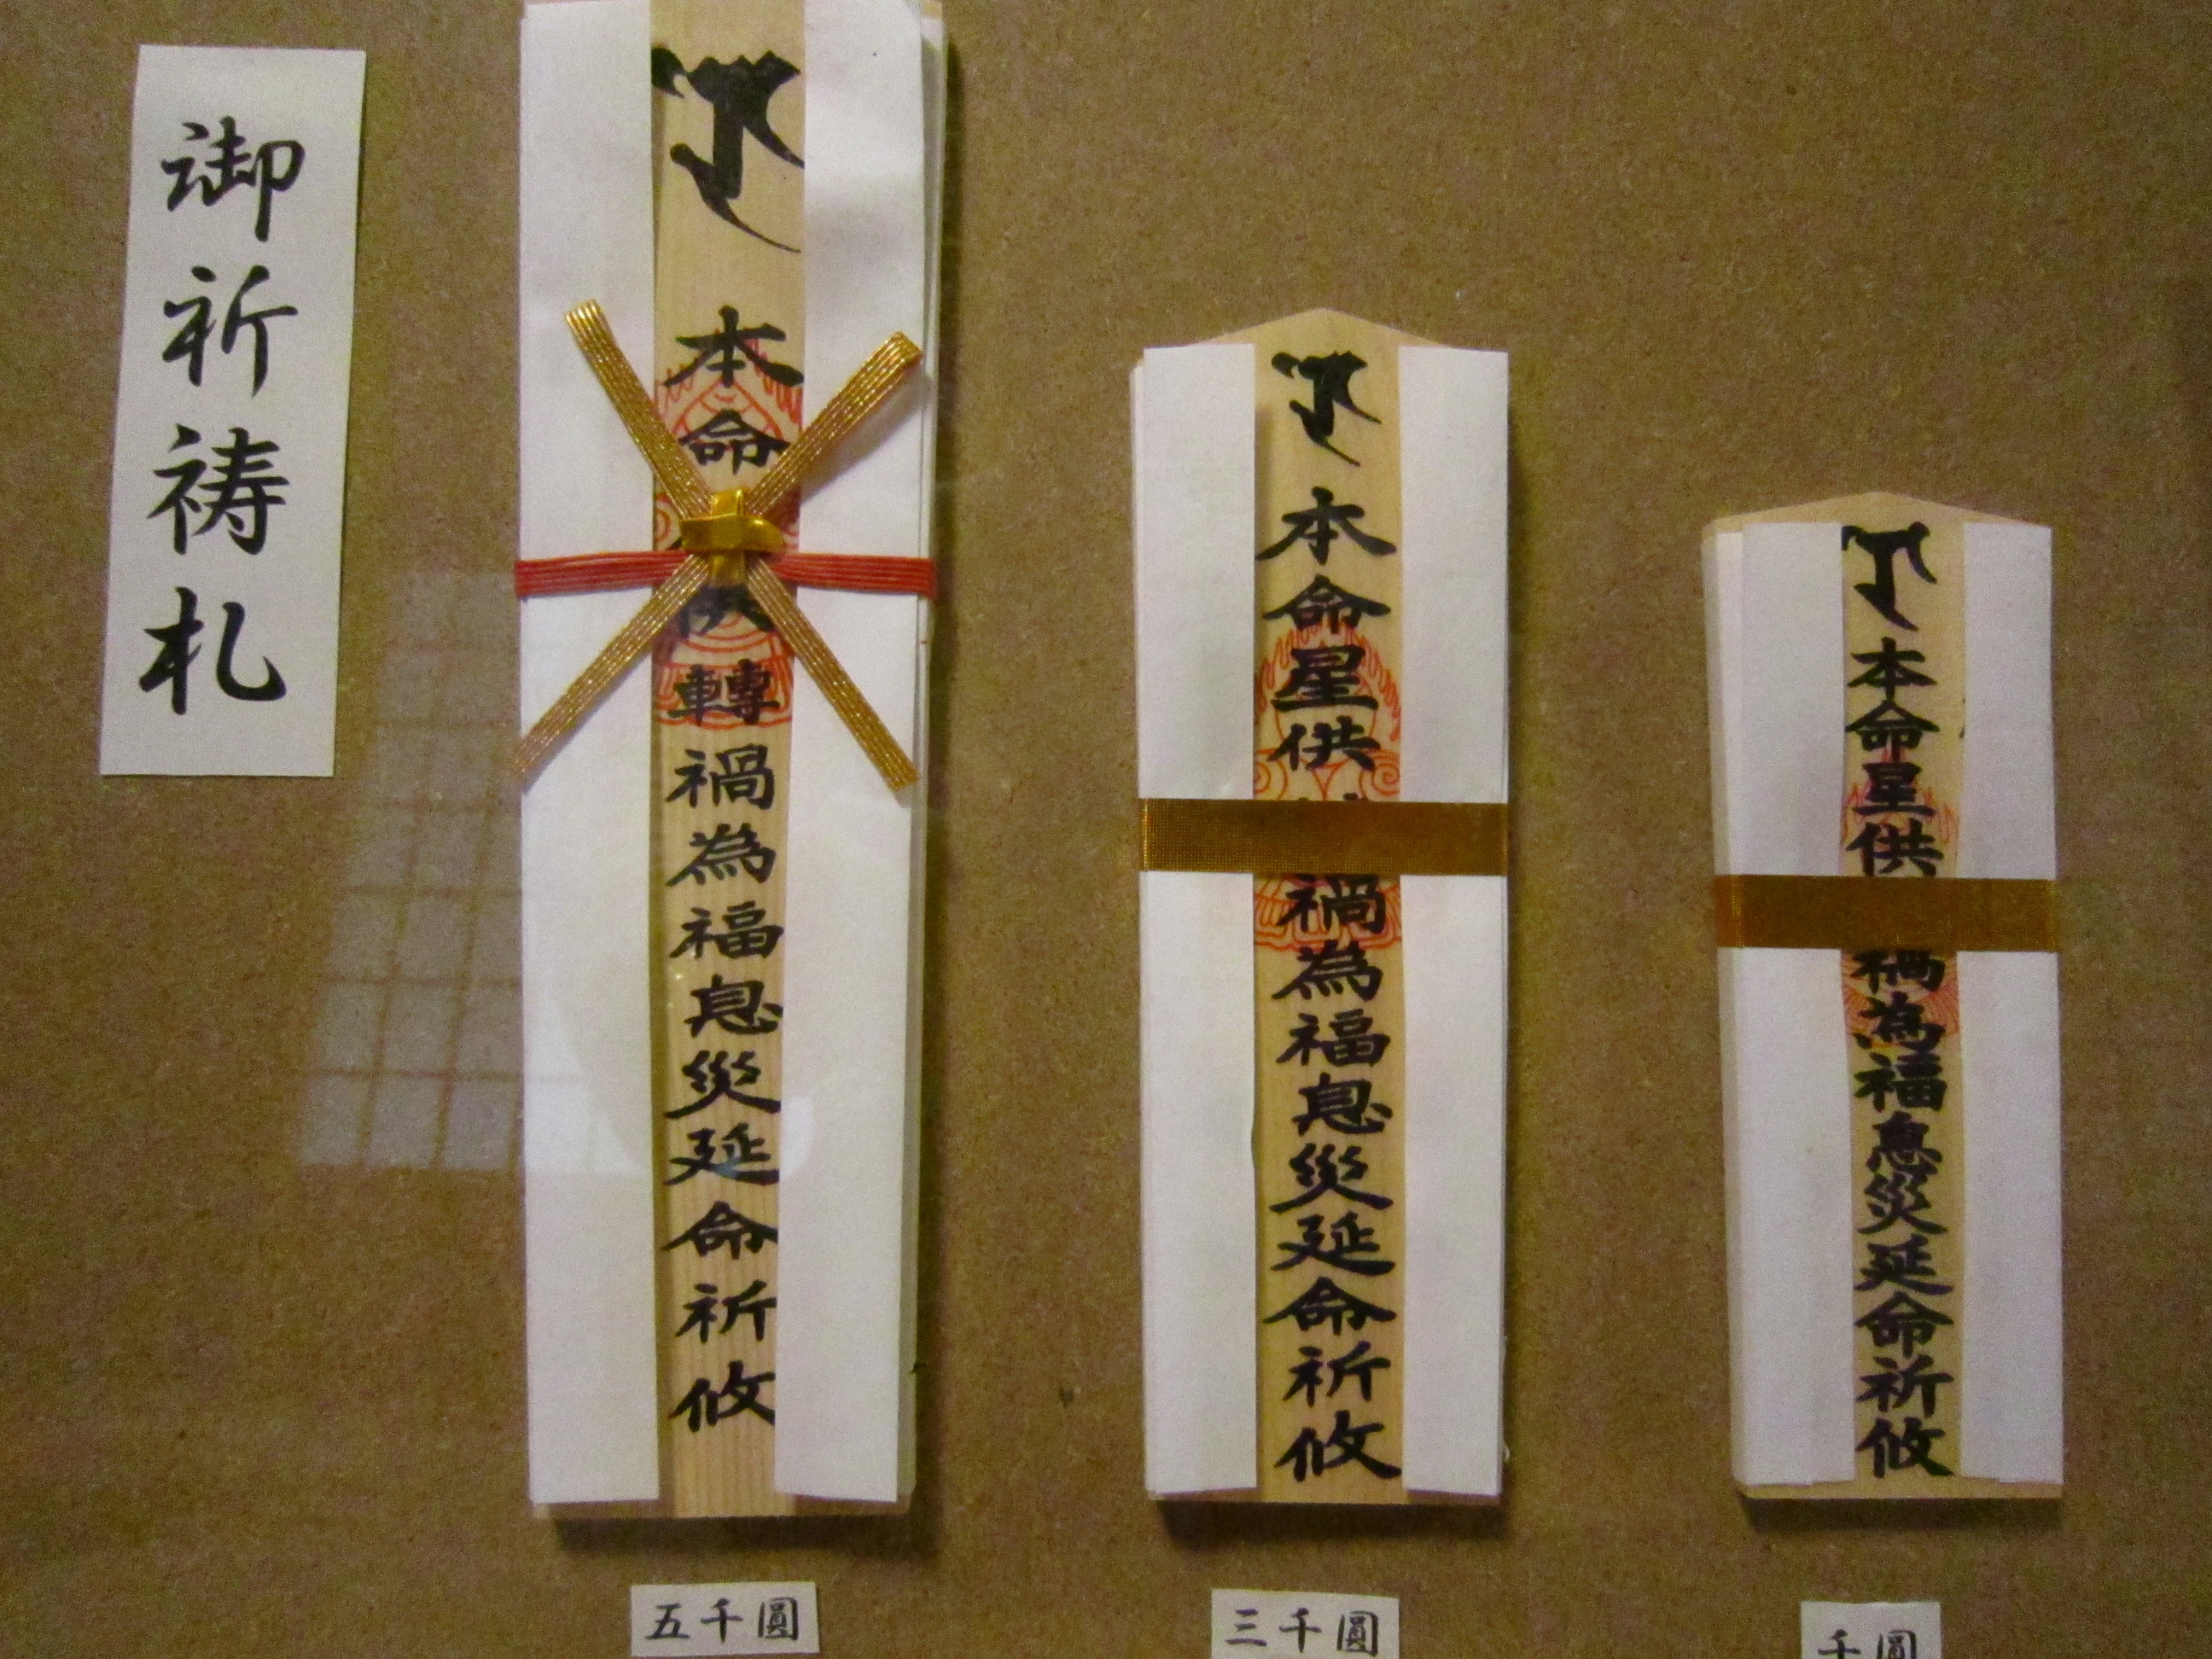 御祈祷札
本命供轉禍為福息災延命祈攸
本命星供禍為福息災延命祈攸
本命星供禍為福息災延命祈攸
五千圓
三千圓
千圓